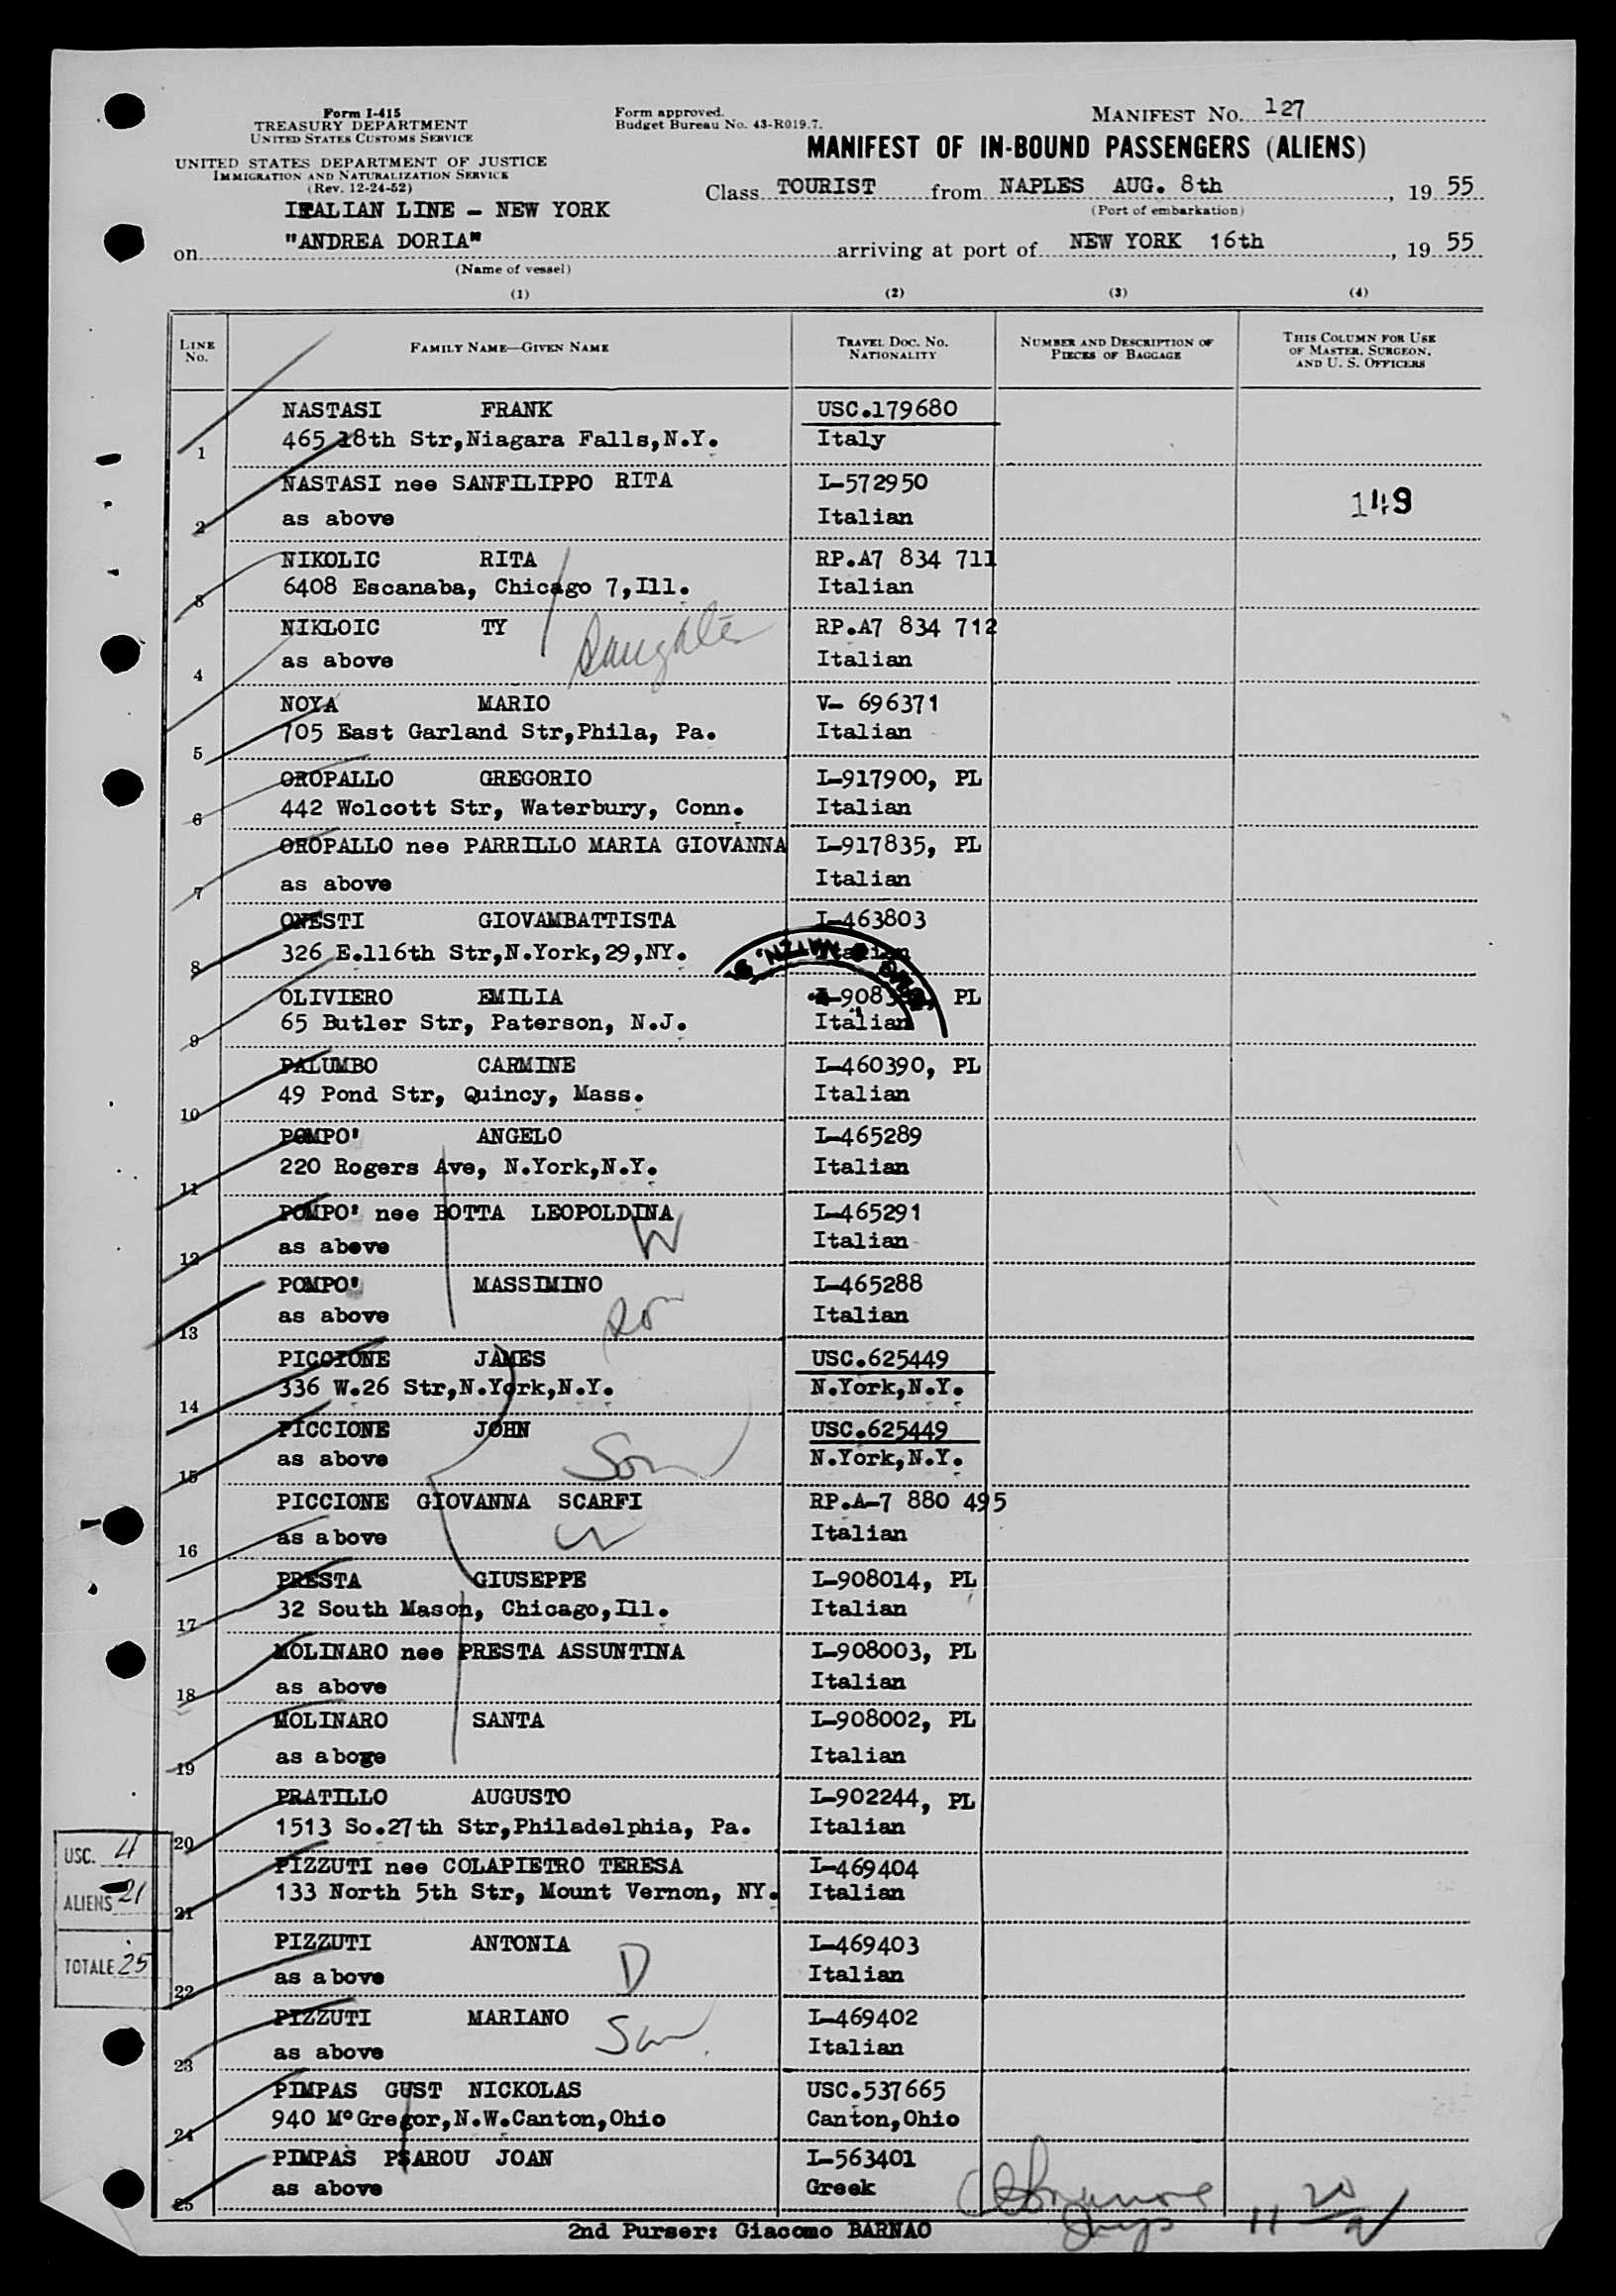 Form I-415
TREASURY DEPARTMENT
UNITED STATES CUSTOMS SERVICE
UNITED STATES DEPARTMENT OF JUSTICE
IMMIGRATION AND NATURALIZATION SERVICE
(Rev. 12-24-52)
Form approved.
Budget Bureau No. 43-R019.7.
MANIFEST No. 127
MANIFEST OF IN-BOUND PASSENGERS (ALIENS)
Class TOURIST from NAPLES AUG. 8th, 19 55
(Port of embarkation)
ITALIAN LINE - NEW YORK
on "ANDREA DORIA" arriving at port of NEW YORK 16th, 19 55
(Name of vessel)
(1) (2) (3) (4)
LINE No. FAMILY NAME—GIVEN NAME TRAVEL DOC. No. NATIONALITY NUMBER AND DESCRIPTION OF PIECES OF BAGGAGE THIS COLUMN FOR USE OF MASTER, SURGEON, AND U. S. OFFICERS
NASTASI FRANK USC.179680
1 465 18th Str,Niagara Falls,N.Y. Italy
NASTASI nee SANFILIPPO RITA I-572950
2 as above Italian 149
NIKOLIC RITA RP.A7 834 711
3 6408 Escanaba, Chicago 7,Ill. Italian
NIKLOIC TY RP.A7 834 712
4 as above Daughter Italian
NOYA MARIO V- 696371
5 705 East Garland Str,Phila, Pa. Italian
OROPALLO GREGORIO I-917900, PL
6 442 Wolcott Str, Waterbury, Conn. Italian
OROPALLO nee PARRILLO MARIA GIOVANNA I-917835, PL
7 as above Italian
ONESTI GIOVAMBATTISTA I-463803
8 326 E.116th Str,N.York,29,NY. Italian
OLIVIERO EMILIA PL
9 65 Butler Str, Paterson, N.J. Italian
PALUMBO CARMINE I-460390, PL
10 49 Pond Str, Quincy, Mass. Italian
POMPO' ANGELO I-465289
11 220 Rogers Ave, N.York,N.Y. Italian
POMPO' nee BOTTA LEOPOLDINA I-465291
12 as above W Italian
POMPO' MASSIMINO I-465288
13 as above son Italian
PICCIONE JAMES USC.625449
14 336 W.26 Str,N.York,N.Y. N.York,N.Y.
PICCIONE JOHN USC.625449
15 as above Son N.York,N.Y.
PICCIONE GIOVANNA SCARFI RP.A-7 880 495
16 as above W Italian
PRESTA GIUSEPPE I-908014, PL
17 32 South Mason, Chicago,Ill. Italian
MOLINARO nee PRESTA ASSUNTINA I-908003, PL
18 as above Italian
MOLINARO SANTA I-908002, PL
19 as aboge Italian
PRATILLO AUGUSTO I-902244, PL
20 1513 So.27th Str,Philadelphia, Pa. Italian
PIZZUTI nee COLAPIETRO TERESA I-469404
21 133 North 5th Str, Mount Vernon, NY. Italian
PIZZUTI ANTONIA I-469403
22 as above D Italian
PIZZUTI MARIANO I-469402
23 as above Son Italian
PIMPAS GUST NICKOLAS USC.537665
24 940 McGregor,N.W.Canton,Ohio Canton,Ohio
PIMPAS PSAROU JOAN I-563401
25 as above Greek
USC. 4
ALIENS 21
TOTALE 25
2nd Purser: Giacomo BARNAO